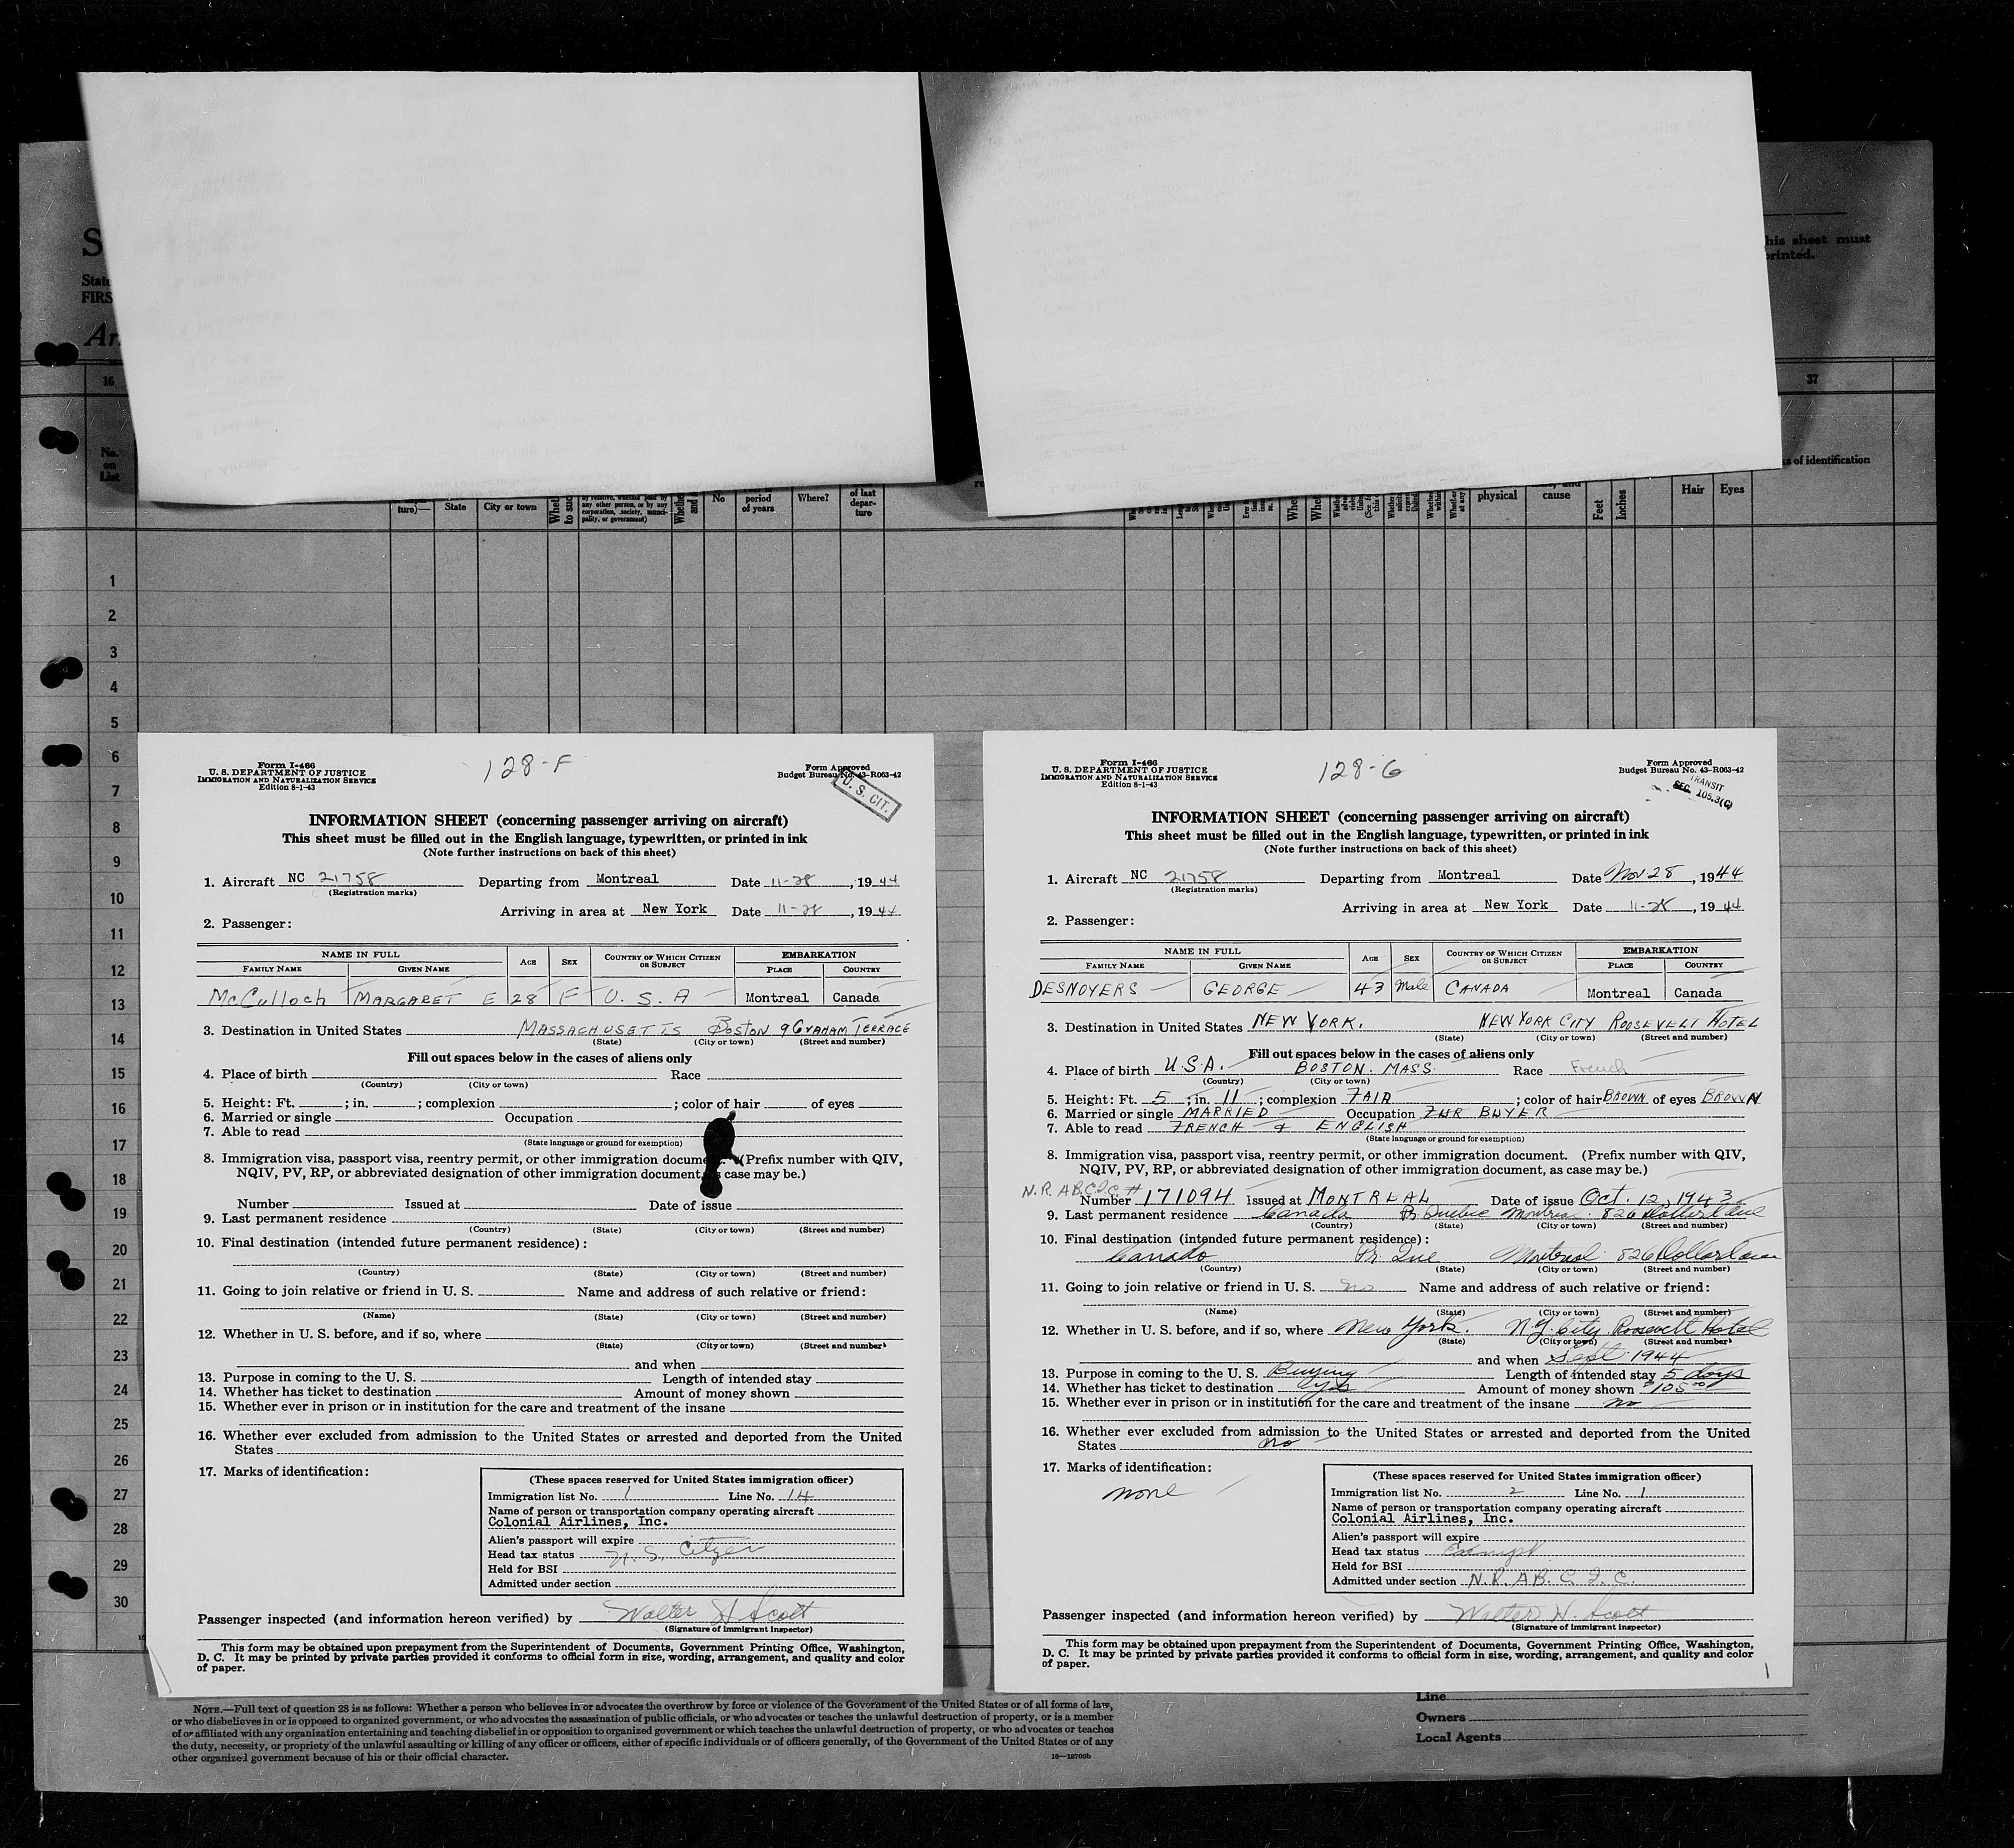 S
State
FIRS
Ar
his sheet must
printed.
16
37
No.
on
List
ks of identification
ture)—
State
City or town
by relative, whether paid by
any other person, or by any
corporation, society, munici-
pality, or government)
No
period
of years
Where?
of last
depar-
ture
physical
cause
Feet
Inches
Hair
Eyes
1
2
3
4
5
6
7
8
9
10
11
12
13
14
15
16
17
18
19
20
21
22
23
24
25
26
27
28
29
30
Form I-466
U. S. DEPARTMENT OF JUSTICE
IMMIGRATION AND NATURALIZATION SERVICE
Edition 8-1-43
128-F
Form Approved
Budget Bureau No. 43-R063-42
U. S. CIT.
INFORMATION SHEET (concerning passenger arriving on aircraft)
This sheet must be filled out in the English language, typewritten, or printed in ink
(Note further instructions on back of this sheet)
1. Aircraft NC 21758 Departing from Montreal Date 11-28, 1944
(Registration marks)
Arriving in area at New York Date 11-28, 1944
2. Passenger:
NAME IN FULL AGE SEX COUNTRY OF WHICH CITIZEN OR SUBJECT EMBARKATION
FAMILY NAME GIVEN NAME PLACE COUNTRY
McCulloch MARGARET E 28 F U. S. A Montreal Canada
3. Destination in United States MASSACHUSETTS Boston 9 GRAHAM TERRACE
(State) (City or town) (Street and number)
Fill out spaces below in the cases of aliens only
4. Place of birth Race
(Country) (City or town)
5. Height: Ft. ; in. ; complexion ; color of hair of eyes
6. Married or single Occupation
7. Able to read
(State language or ground for exemption)
8. Immigration visa, passport visa, reentry permit, or other immigration docume (Prefix number with QIV,
NQIV, PV, RP, or abbreviated designation of other immigration document, case may be.)
Number Issued at Date of issue
9. Last permanent residence
(Country) (State) (City or town) (Street and number)
10. Final destination (intended future permanent residence):
(Country) (State) (City or town) (Street and number)
11. Going to join relative or friend in U. S. Name and address of such relative or friend:
(Name) (State) (City or town) (Street and number)
12. Whether in U. S. before, and if so, where
(State) (City or town) (Street and number)
and when
13. Purpose in coming to the U. S. Length of intended stay
14. Whether has ticket to destination Amount of money shown
15. Whether ever in prison or in institution for the care and treatment of the insane
16. Whether ever excluded from admission to the United States or arrested and deported from the United
States
17. Marks of identification:
(These spaces reserved for United States immigration officer)
Immigration list No. 1 Line No. 14
Name of person or transportation company operating aircraft
Colonial Airlines, Inc.
Alien's passport will expire
Head tax status U. S. Citizen
Held for BSI
Admitted under section
Passenger inspected (and information hereon verified) by Walter H. Scott
(Signature of immigrant inspector)
This form may be obtained upon prepayment from the Superintendent of Documents, Government Printing Office, Washington,
D. C. It may be printed by private parties provided it conforms to official form in size, wording, arrangement, and quality and color
of paper.
Form I-466
U. S. DEPARTMENT OF JUSTICE
IMMIGRATION AND NATURALIZATION SERVICE
Edition 8-1-43
128-G
Form Approved
Budget Bureau No. 43-R063-42
TRANSIT
SEC. 105.3(C)
INFORMATION SHEET (concerning passenger arriving on aircraft)
This sheet must be filled out in the English language, typewritten, or printed in ink
(Note further instructions on back of this sheet)
1. Aircraft NC 21758 Departing from Montreal Date Nov 28, 1944
(Registration marks)
Arriving in area at New York Date 11-28, 1944
2. Passenger:
NAME IN FULL AGE SEX COUNTRY OF WHICH CITIZEN OR SUBJECT EMBARKATION
FAMILY NAME GIVEN NAME PLACE COUNTRY
DESNOYERS GEORGE 43 Male CANADA Montreal Canada
3. Destination in United States NEW YORK. NEW YORK CITY ROOSEVELT HOTEL
(State) (City or town) (Street and number)
Fill out spaces below in the cases of aliens only
4. Place of birth U.S.A. BOSTON. MASS. Race French
(Country) (City or town)
5. Height: Ft. 5; in. 11; complexion FAIR; color of hair BROWN of eyes BROWN
6. Married or single MARRIED Occupation FUR BUYER
7. Able to read FRENCH & ENGLISH
(State language or ground for exemption)
8. Immigration visa, passport visa, reentry permit, or other immigration document. (Prefix number with QIV,
NQIV, PV, RP, or abbreviated designation of other immigration document, as case may be.)
N.R.A.B.C.I.C. #
Number 171094 Issued at MONTREAL Date of issue Oct. 12, 1943
9. Last permanent residence Canada Pr. Quebec Montreal. 826
(Country) (State) (City or town) (Street and number)
10. Final destination (intended future permanent residence):
Canada Pr. Que Montreal 826
(Country) (State) (City or town) (Street and number)
11. Going to join relative or friend in U. S. no Name and address of such relative or friend:
(Name) (State) (City or town) (Street and number)
12. Whether in U. S. before, and if so, where New York. N.Y. City Roosevelt Hotel
(State) (City or town) (Street and number)
and when Sept. 1944
13. Purpose in coming to the U. S. Buying Length of intended stay 5 days
14. Whether has ticket to destination yes Amount of money shown $105.00
15. Whether ever in prison or in institution for the care and treatment of the insane no
16. Whether ever excluded from admission to the United States or arrested and deported from the United
States no
17. Marks of identification:
none
(These spaces reserved for United States immigration officer)
Immigration list No. 2 Line No. 1
Name of person or transportation company operating aircraft
Colonial Airlines, Inc.
Alien's passport will expire
Head tax status Exempt
Held for BSI
Admitted under section N.R.A.B.C.I.C.
Passenger inspected (and information hereon verified) by Walter H. Scott
(Signature of immigrant inspector)
This form may be obtained upon prepayment from the Superintendent of Documents, Government Printing Office, Washington,
D. C. It may be printed by private parties provided it conforms to official form in size, wording, arrangement, and quality and color
of paper.
NOTE.—Full text of question 28 is as follows: Whether a person who believes in or advocates the overthrow by force or violence of the Government of the United States or of all forms of law,
or who disbelieves in or is opposed to organized government, or who advocates the assassination of public officials, or who advocates or teaches the unlawful destruction of property, or is a member
of or affiliated with any organization entertaining and teaching disbelief in or opposition to organized government or which teaches the unlawful destruction of property, or who advocates or teaches
the duty, necessity, or propriety of the unlawful assaulting or killing of any officer or officers, either of specific individuals or of officers generally, of the Government of the United States or of any
other organized government because of his or their official character.
16—18700b
Line
Owners
Local Agents